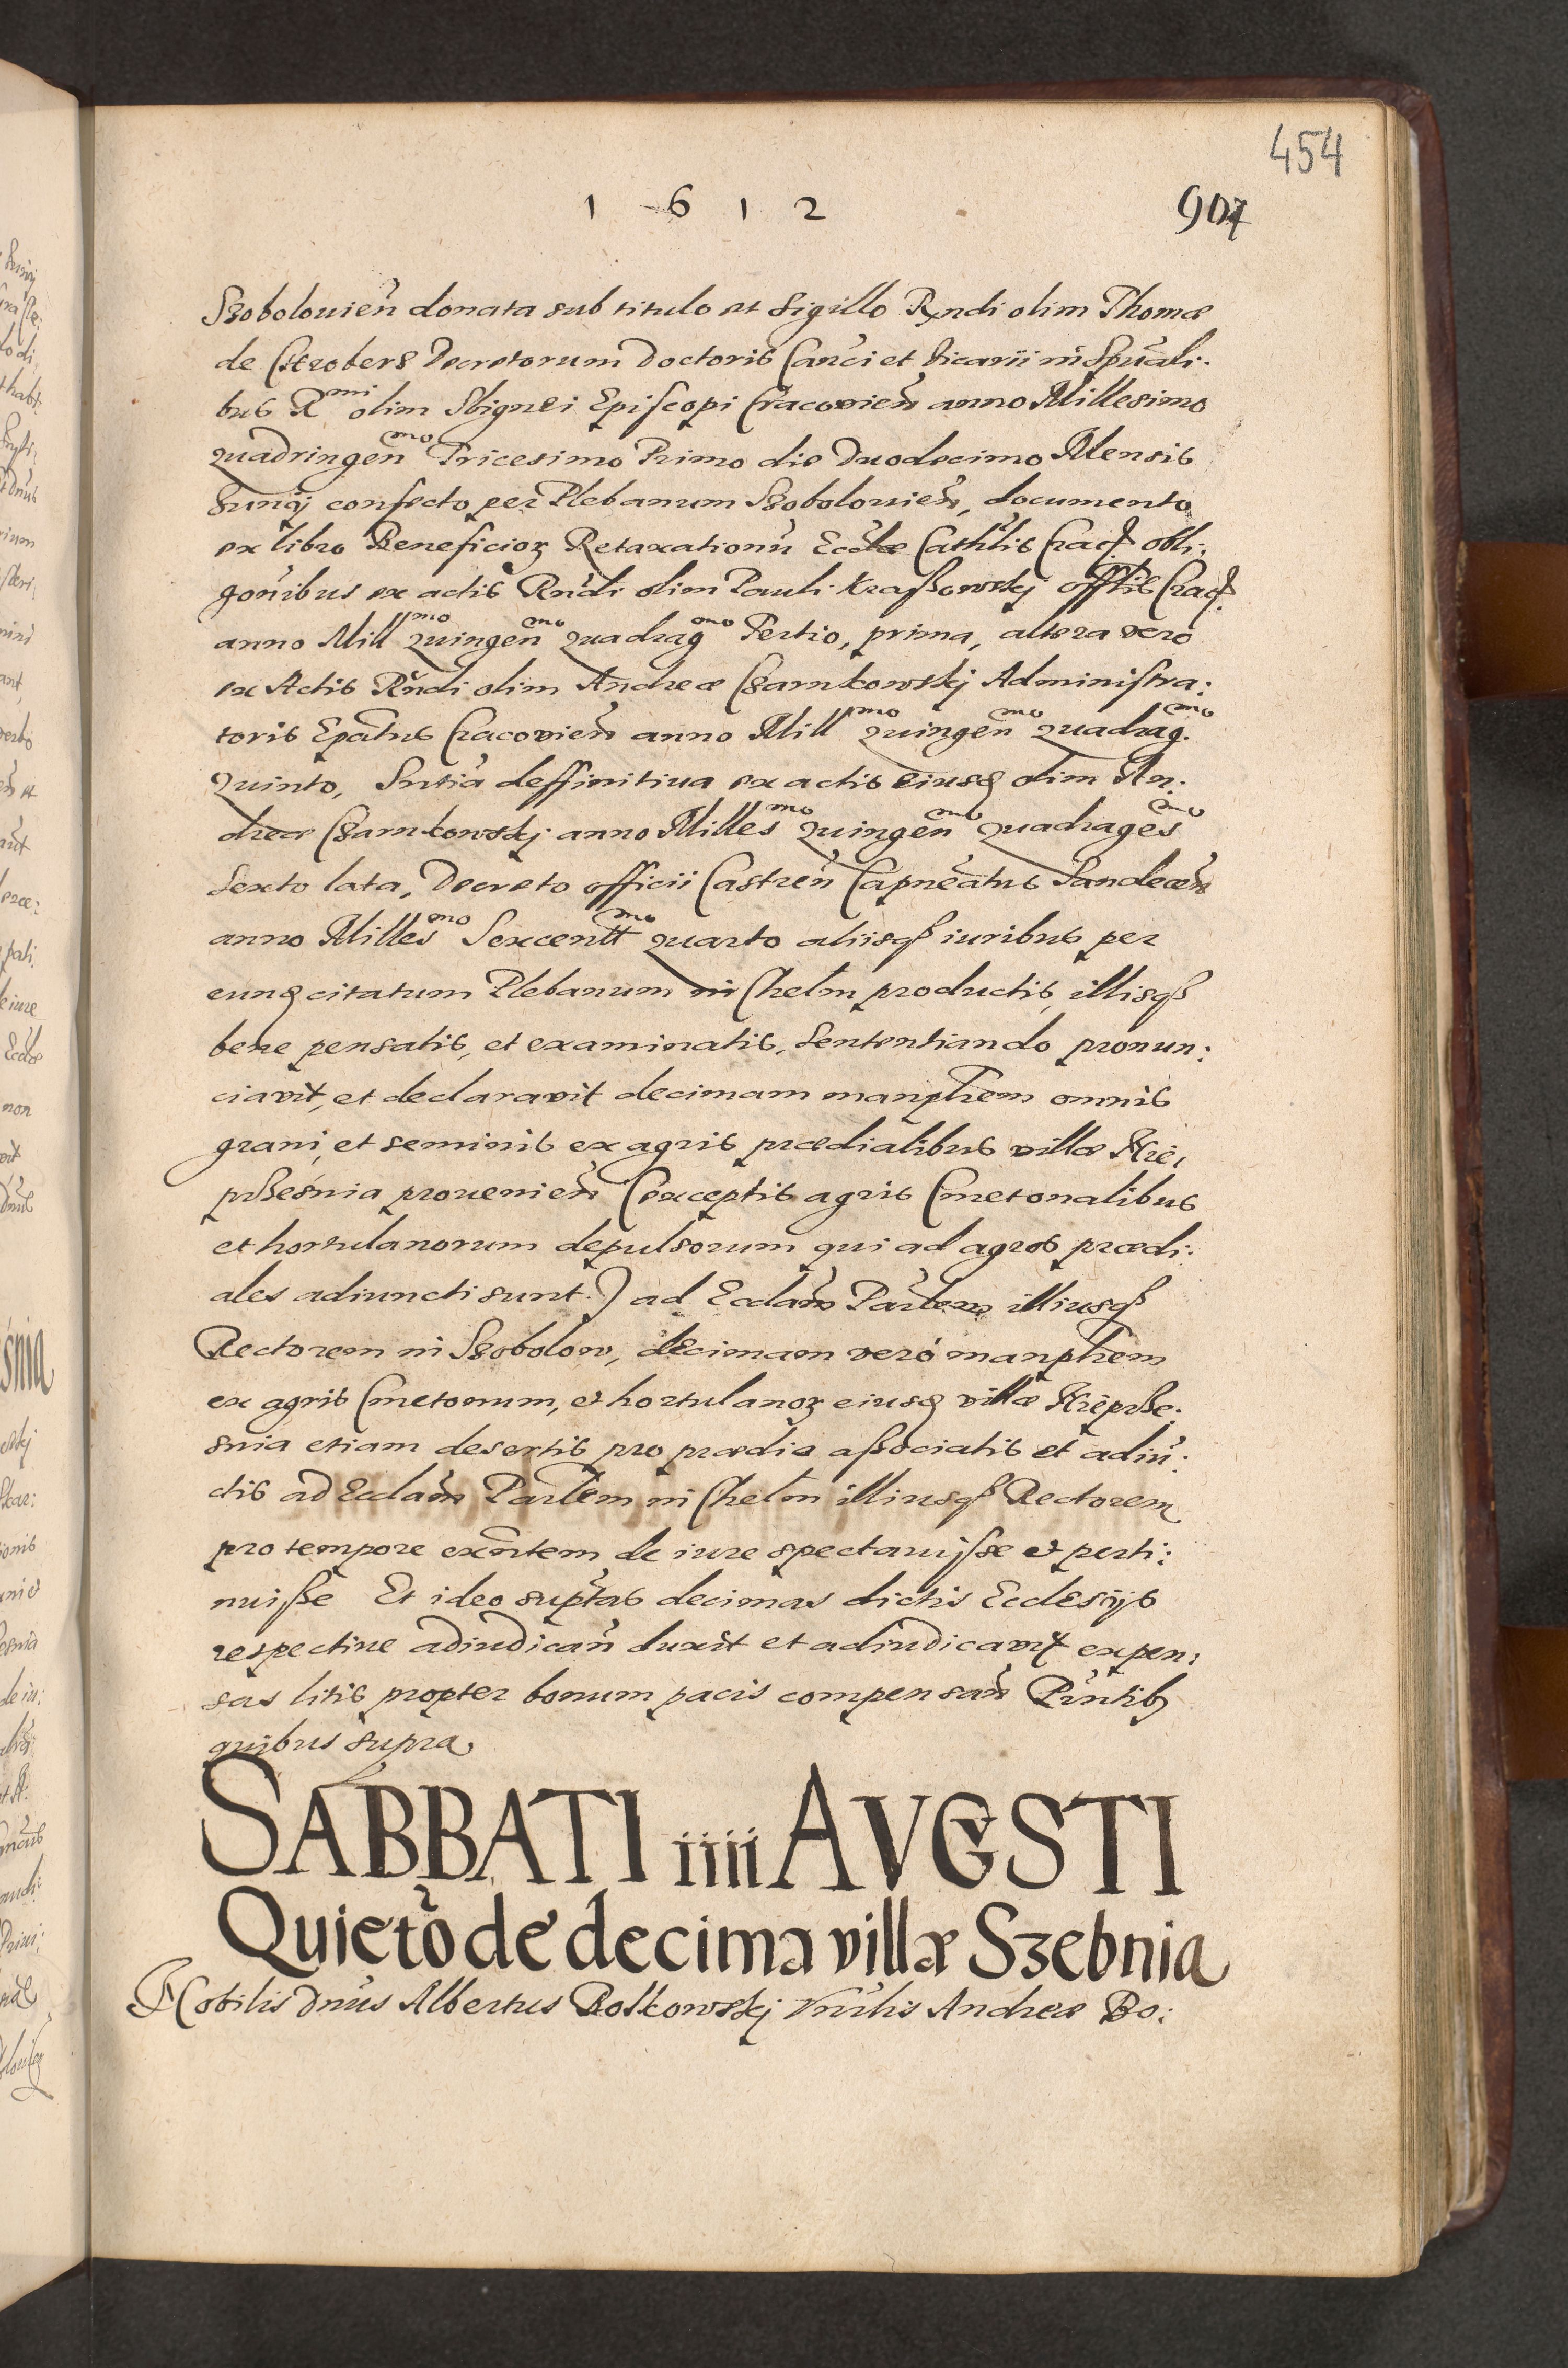 454
1 6 1 2
907
Szobolouien̄ donata sub titulo et Sigillo Rndi olim Thomæ
de Chrobers Decretorum Doctoris Can̄ci et Vicarii in Sp̄uali:
bus Rmi olim Sbignei Episcopi Cracovien̄ anno Millesimo
quadringen̄mo Tricesimo Primo die Duodecimo Mensis
Iunij confecto per Plebanum Szobolouien̄, documento
ex libro Beneficior Retaxationū Eccłæ Cathłis Crac obli:
gonībus ex actis Rn̄di olim Pauli Kraszowskj offłis Crac
anno Millmo quingen̄mo quadragmo Tertio, prima, altera vero
ex Actis Rn̄di olim Andreæ Czarnkowskj Administra:
toris Ep̄atus Cracovien̄ anno Millmo quingen̄mo quadragmo
quinto, Sn̄tia deffinitiua ex actis eiusd olim An:
dreæ Czarnkowskj anno Millesmo quingen̄mo quadragesmo
Sexto lata, Decreto officii Castren̄ Capn̄eatus Sandecen̄
anno Millesmo Sexcenttmo quarto aliisq iuribus per
eund citatum Plebanum in Chelm productis, illisq
bene pensatis, et examinatis, Sententiando pronun:
ciavit, et declaravit decimam manplem omnis
grani, et seminis ex agris prædialibus villæ Kie:
przesnia prouenien̄ (exceptis agris Cmetonalibus
et hortulanorum depulsorum qui ad agros prædi:
ales adiuncti sunt.) ad Eccłam Parlem illiusq
Rectorem in Szobolow, decimam veró manplem
ex agris Cmetonum, et hortulanor eiusd villæ Kieprze:
snia etiam desertis pro prædio aßociatis et adiū:
ctis ad Eccłam Parłem in Chelm illiusq Rectorem
pro tempore exn̄tem de iure spectauisse et perti:
nuisse Et ideo sup̄tas decimas dictis Ecclesijs
respectiue adiudican̄ duxit et adiudicavit expen:
sas litis propter bonum pacis compensan̄ Pn̄tib
quibus supra
SABBATI iiii AVGVSTI
Quietō de decima villæ Szebnia
Nobilis Dnus Albertus Roskowskj Vn̄lis Andreæ Bo: